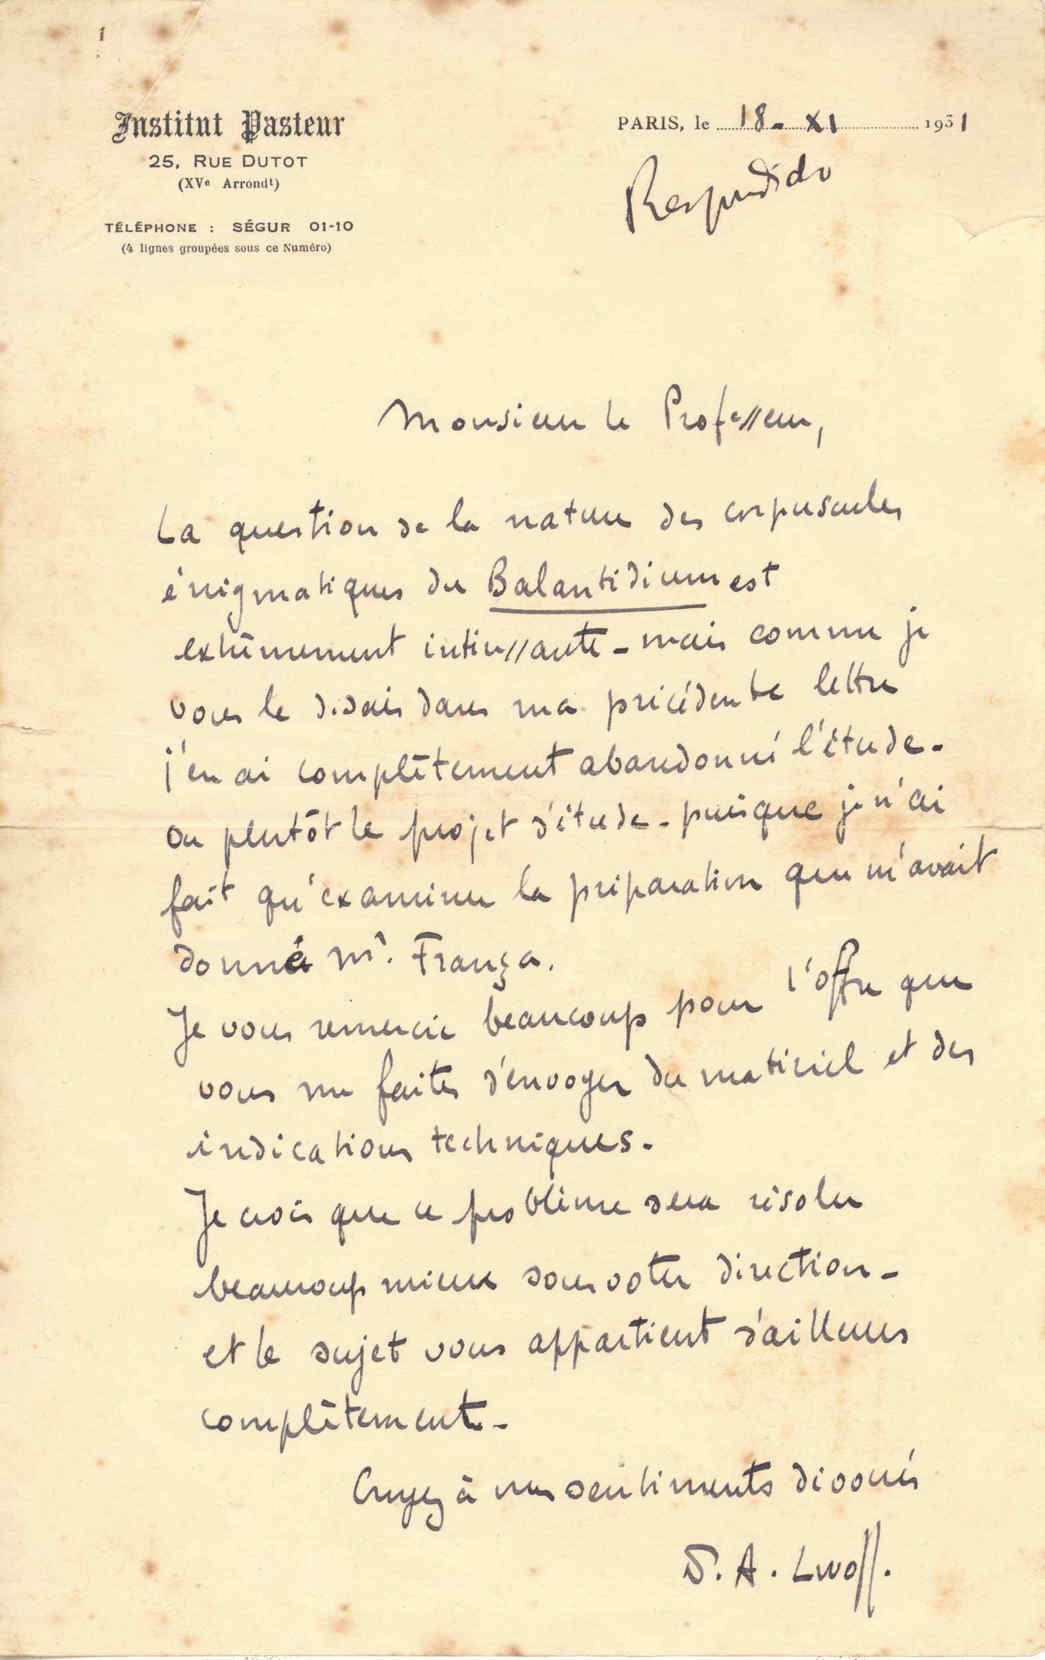 1
Institut Pasteur
25, RUE DUTOT
(XVe Arrondt)
TÉLÉPHONE : SÉGUR 01-10
(4 lignes groupées sous ce Numéro)
PARIS, le 18 - XI 1931
Respondido
Monsieur le Professeur,
La question de la nature des corpuscules
énigmatiques du Balantidium est
extrêmement intéressante - mais comme je
vous le disais dans ma précédente lettre
j'en ai complètement abandonné l'étude -
ou plutôt le projet d'étude - puisque je n'ai
fait qu'examiner la préparation que m'avait
donné Mr. França.
Je vous remercie beaucoup pour l'offre que
vous me faites d'envoyer du matériel et des
indications techniques.
Je crois que ce problème sera résolu
beaucoup mieux sous votre direction -
et le sujet vous appartient d'ailleurs
complètement -
Croyez à mes sentiments dévoués
D. A. Lwoff.